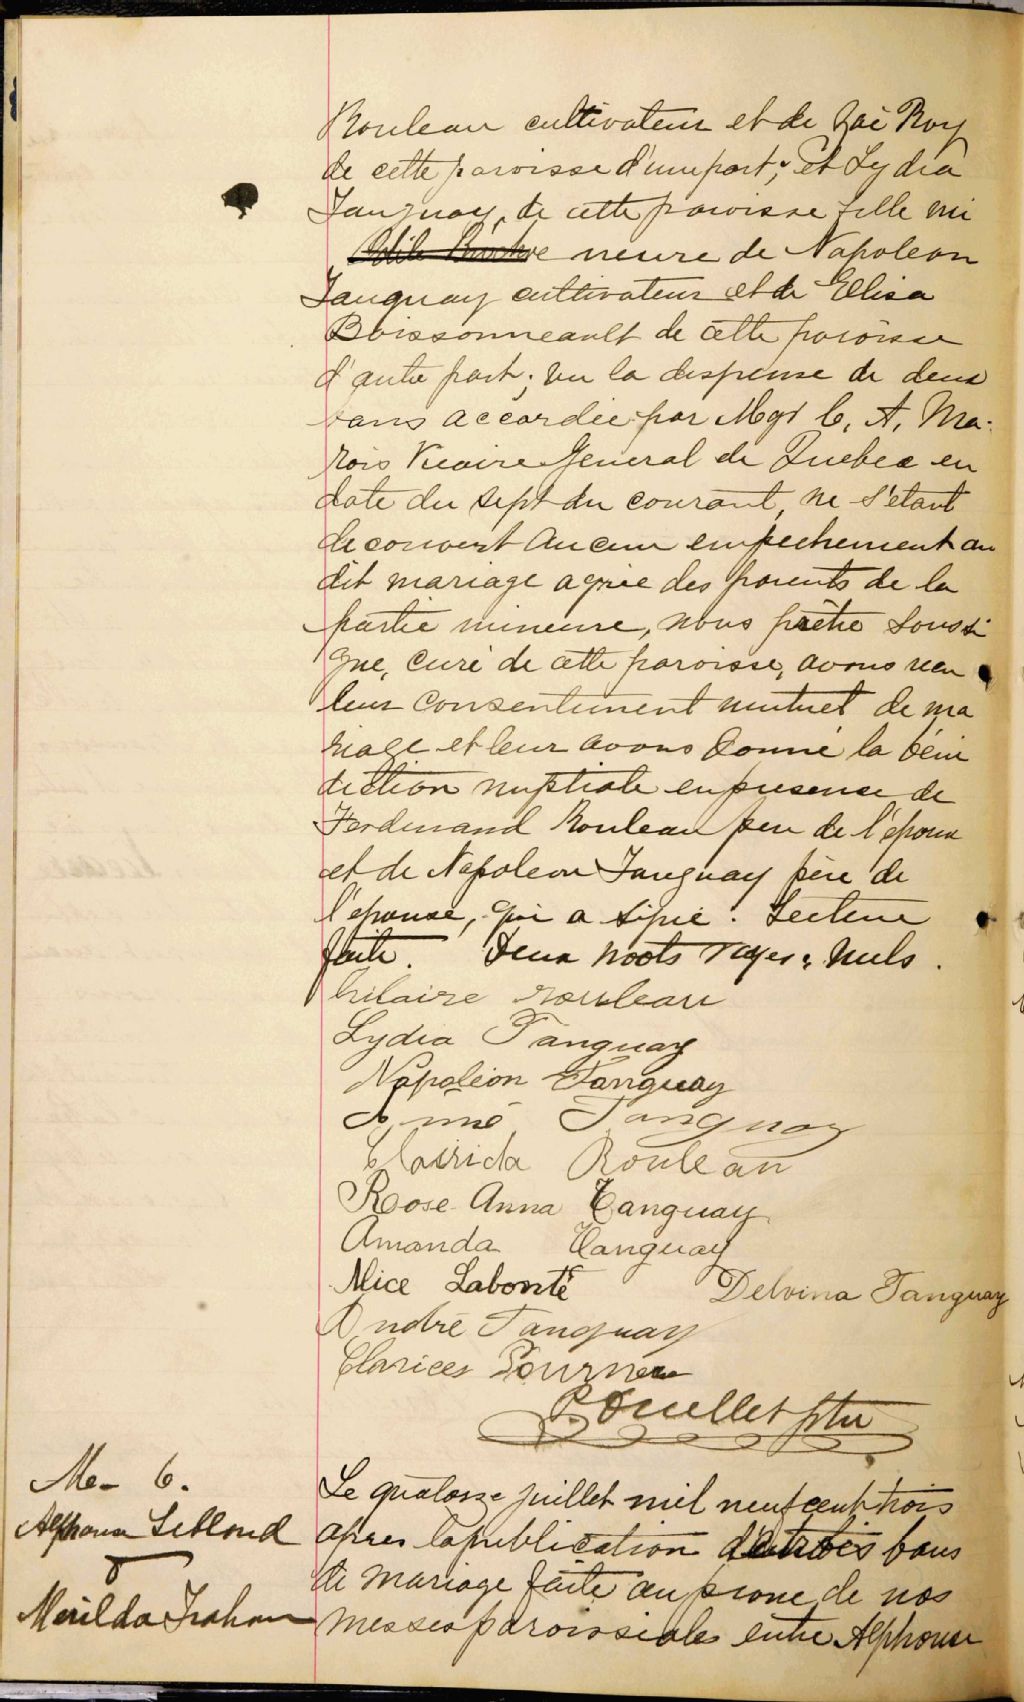 Rouleau cultivateur et de Zoé Roy
de cette paroisse d'une part; et Lydia
Tanguay, de cette paroisse fille mi
neure de Napoleon
Tanguay cultivateur et de Elisa
Boissonneault de cette paroisse
d'autre part; vu la dispense de deux
bans accordée par Mgr C. A. Ma-
rois Vicaire General de Quebec en
date du sept du courant, ne s'etant
decouvert aucun empechement au
dit mariage agrée des parents de la
partie mineure, nous prêtre soussi
gné, curé de cette paroisse, avons reçu
leur consentement mutuel de ma
riage et leur avons donné la béné
diction nuptiale en presence de
Ferdinand Rouleau pere de l'époux
et de Napoleon Tanguay père de
l'epouse, qui a signé. Lecture
faite. Deux mots rayés nuls.
hilaire rouleau
Lydia Tanguay
Napoléon Tanguay
Aimé Tanguay
Clairida Rouleau
Rose-Anna Tanguay
Amanda Tanguay
Alice Labonté Delvina Tanguay
André Tanguay
Clarices Fournier
P. Ouellet ptre
M- 6.
Alphonse Leblond
&
Merilda Trahan
Le quatorze juillet mil neuf cent trois
apres la publication de trois bans
de mariage faite au prone de nos
messes paroissiales entre Alphonse